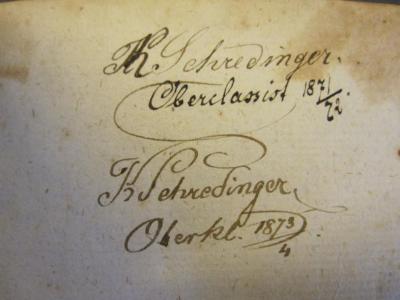 K Schredinger.
Oberclassist 1871/72.
K Schredinger,
Oberkl. 1873/4.